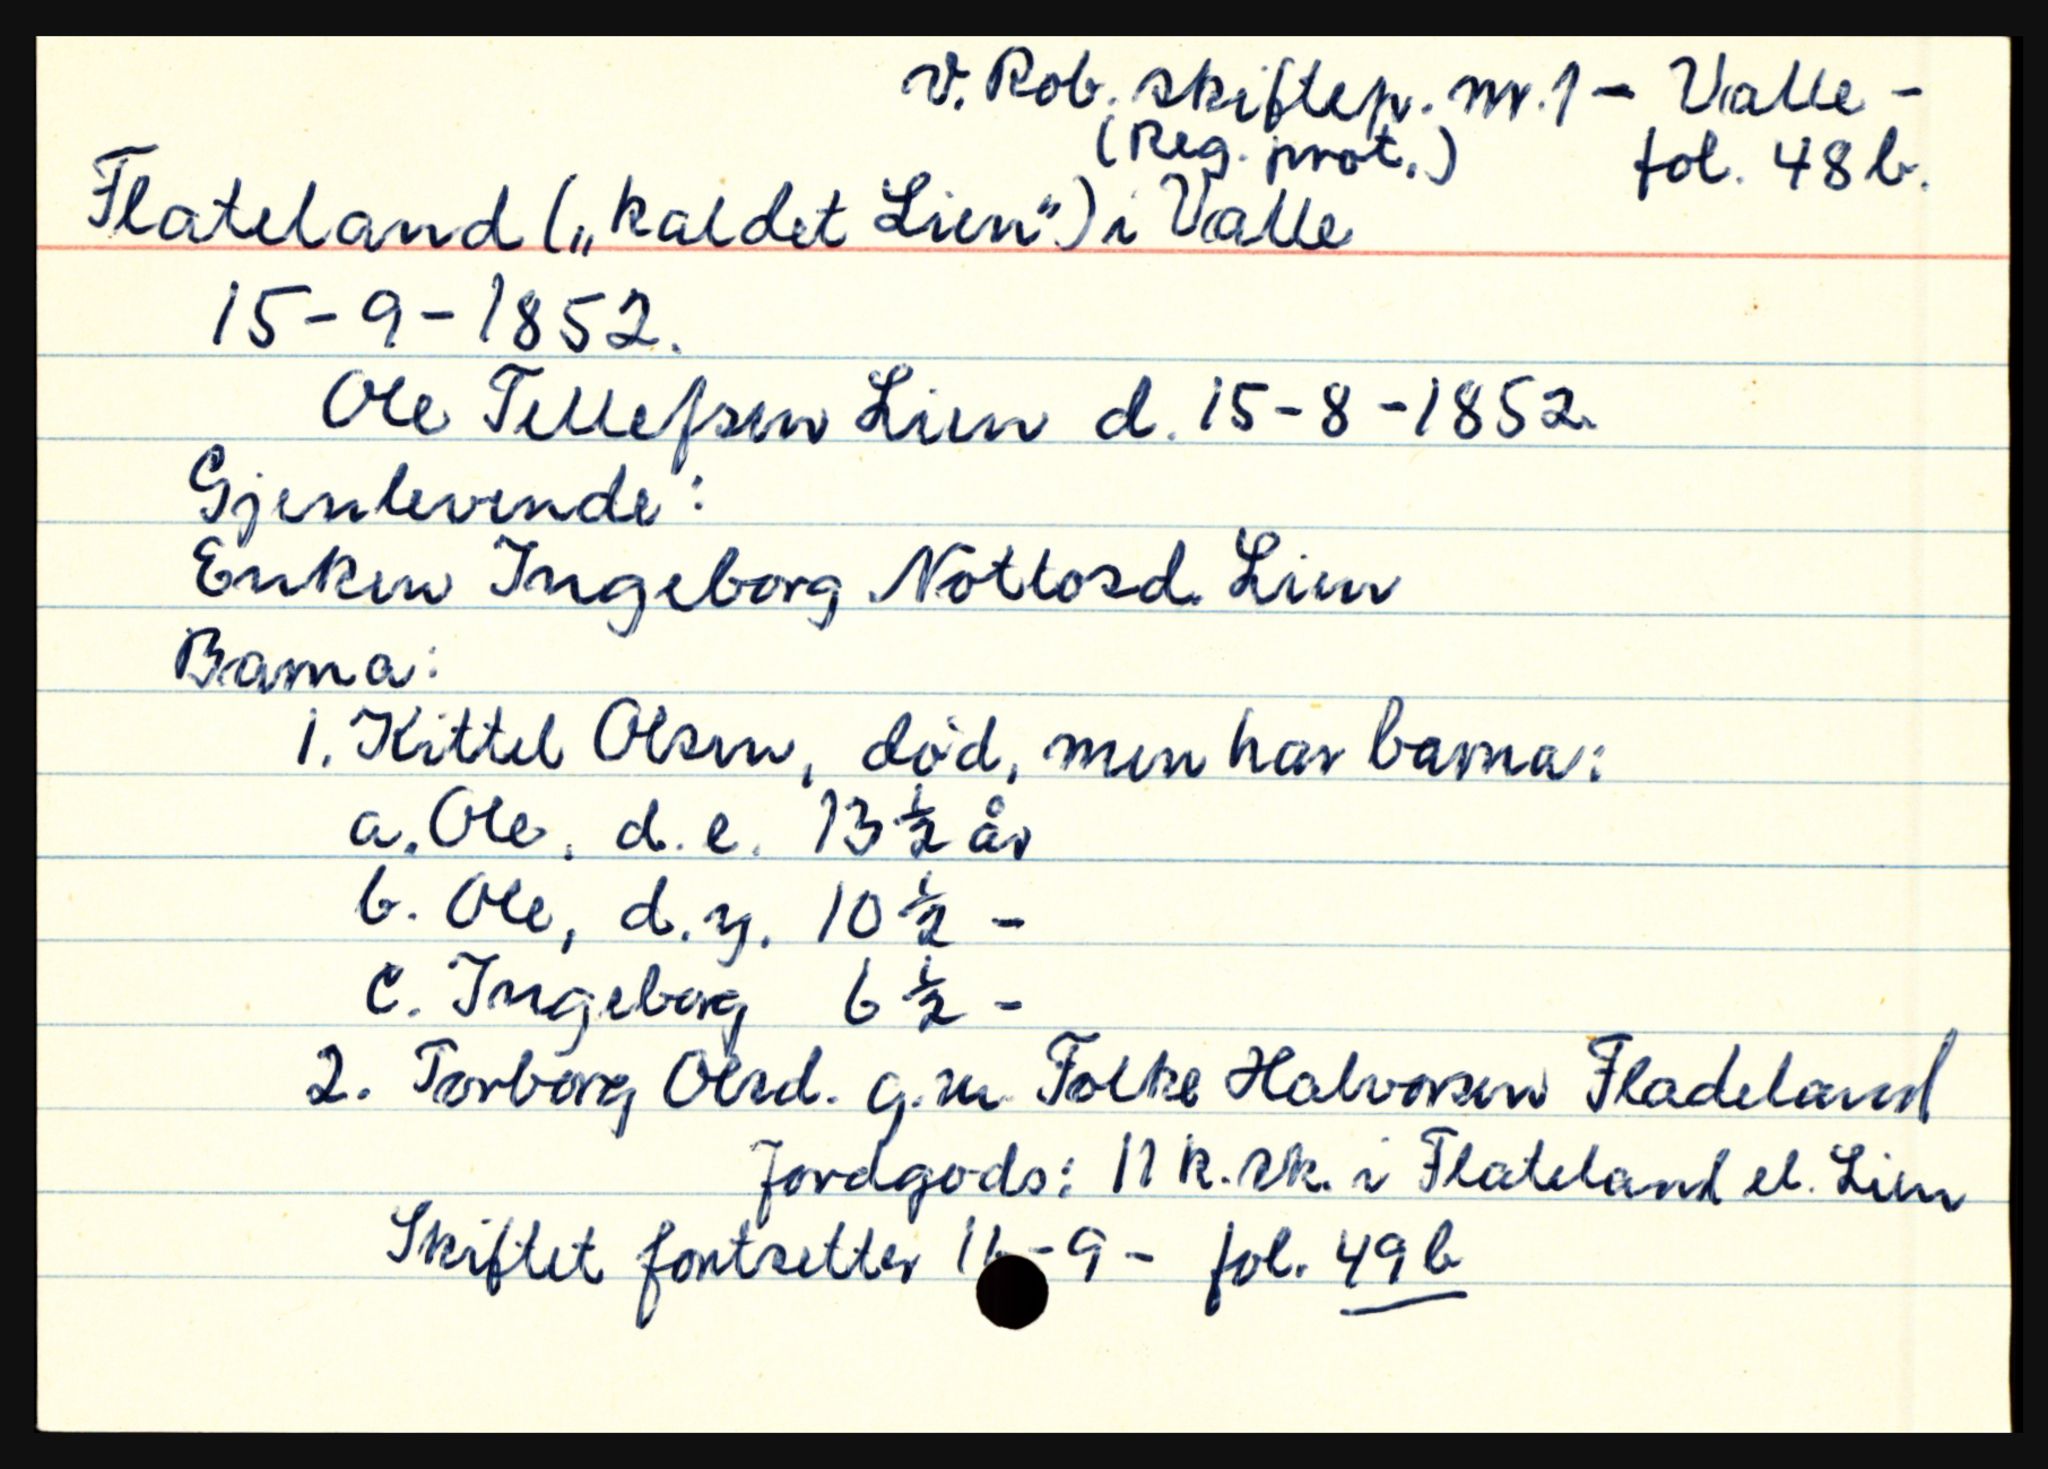 V. Rob. skiftep. nr. 1 - Valle -
(Reg. prot.) fol. 48b.
Flateland („kaldet Lien") i Valle
15-9-1852.
Ole Tellefsen Lien d. 15-8-1852.
Gjenlevende:
Enken Ingeborg Nottosd. Lien
Barna:
1. Kittel Olsen, død, men har barna:
a. Ole, d.e. 13 ½ år
b. Ole, d.y. 10 ½ -
c. Ingeborg 6 ½ -
2. Torborg Olsd. g.m. Folke Halvorsen Fladeland
Jordgods: 11 k.sk. i Flateland el. Lien
Skiftet fortsetter -9- fol. 49b